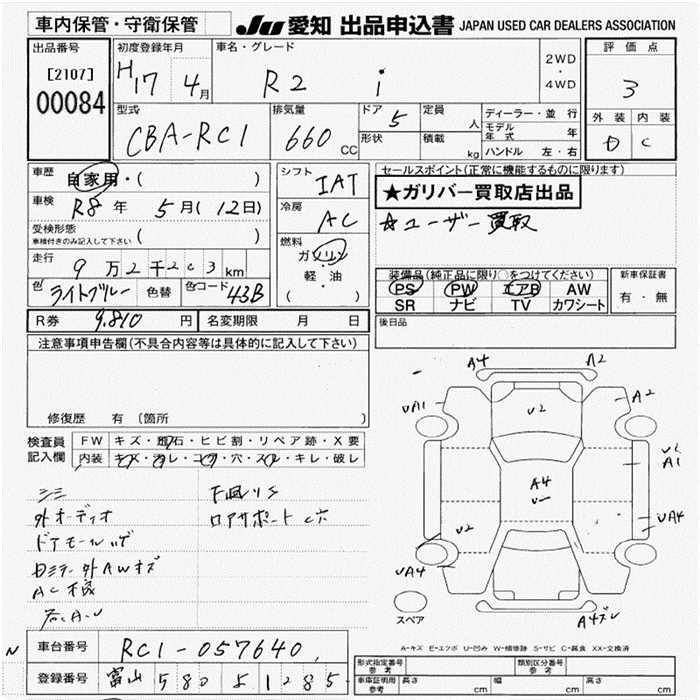 車内保管・守衛保管
JU 愛知 出品申込書 JAPAN USED CAR DEALERS ASSOCIATION
出品番号
[2107]
00084
初度登録年月
H17 4月
車名・グレード
R2 i
2WD
・
4WD
評価点
3
外装 内装
D C
型式
CBA-RC1
排気量
660 CC
ドア
5
形状
定員
人
積載
kg
ディーラー・並行
モデル年式 年
ハンドル 左・右
車歴
自家用・( )
車検
R8年 5月(12日)
受検形態
車検付きのみ記入して下さい ( )
走行
9万2千2c3km
色 ライトブルー 色替 色コード 43B
R券 9,810 円 名変期限 月 日
シフト
IAT
冷房
AC
燃料
ガソリン
軽・油
( )
セールスポイント(正常に機能するものに限ります)
★ガリバー買取店出品
☆ユーザー買取
装備品(純正品に限り○をつけてください)
PS PW エアB AW
SR ナビ TV カワシート
新車保証書
有・無
後日品
注意事項申告欄(不具合内容等は具体的に記入して下さい)
修復歴 有 (箇所 )
検査員
記入欄
FW キズ・飛石・ヒビ割・リペア跡・X要
内装 キズ・ヨゴレ・コゲ・穴・スレ・キレ・破レ
シミ
外オーディオ
ドアモールハゲ
ロアサポートC穴
A4 A2
UA1 A2
U2
A4
U2
UA4
A1
UA4
スペア
A-キズ E-エクボ U-凹み W-補修跡 S-サビ C-腐食 XX-交換済
N
車台番号 RC1-057640
登録番号 富山 580 う 1285
形式指定番号
参考
類別区分番号
参考
車庫証明用
参考
長さ cm 幅 cm 高さ cm